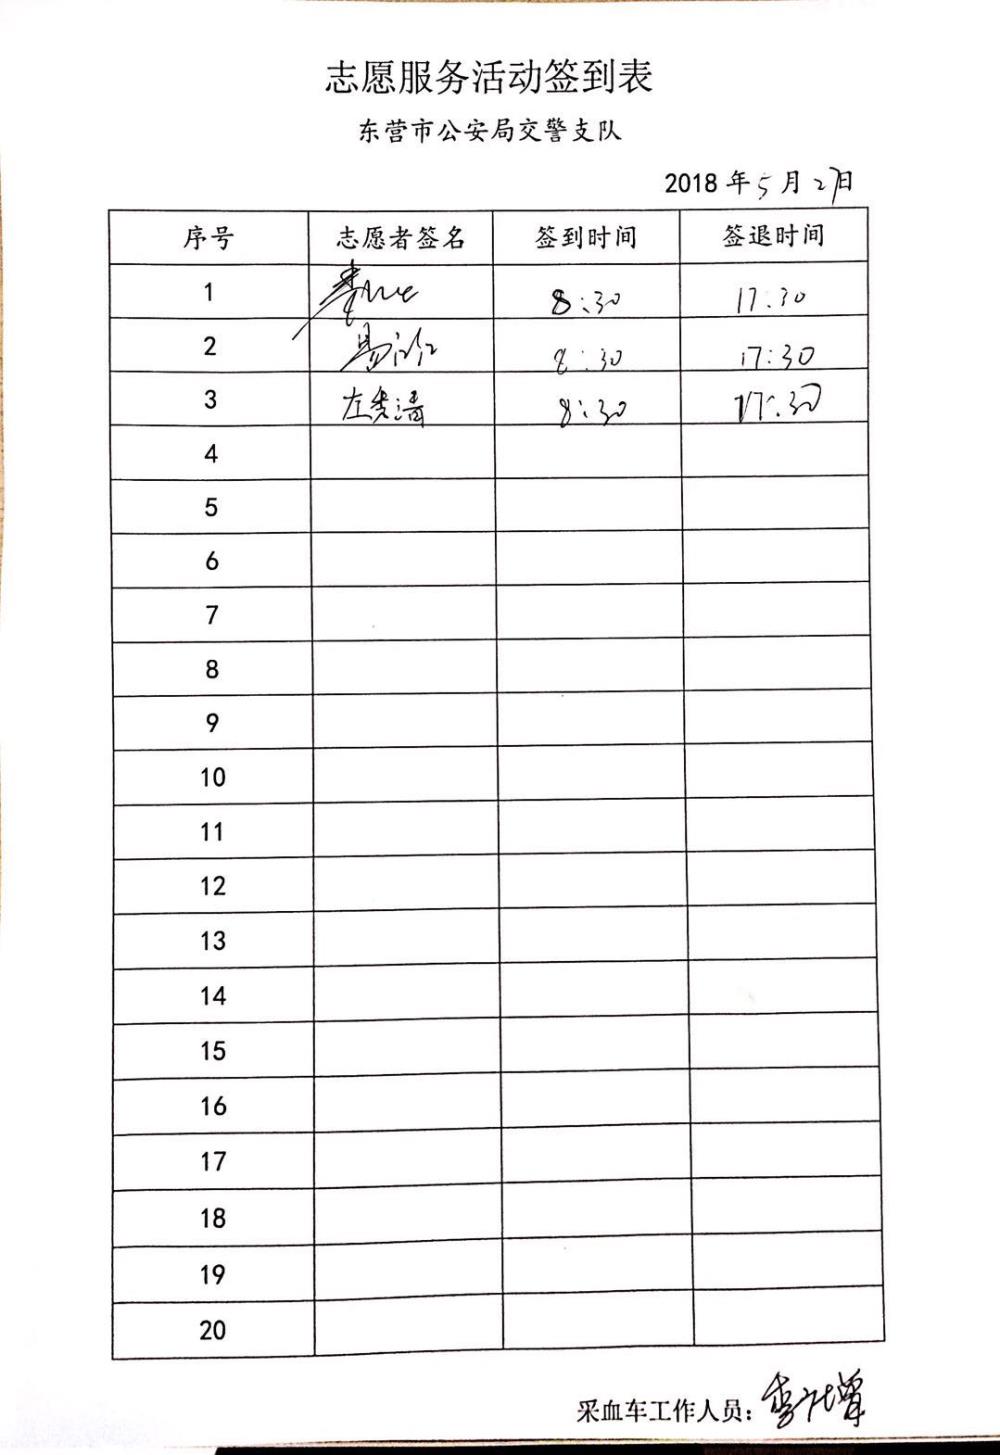 志愿服务活动签到表
东营市公安局交警支队
2018 年 5 月 27日
序号 志愿者签名 签到时间 签退时间
1 8:30 17:30
2 8:30 17:30
3 左秀清 8:30 17:30
4
5
6
7
8
9
10
11
12
13
14
15
16
17
18
19
20
采血车工作人员: